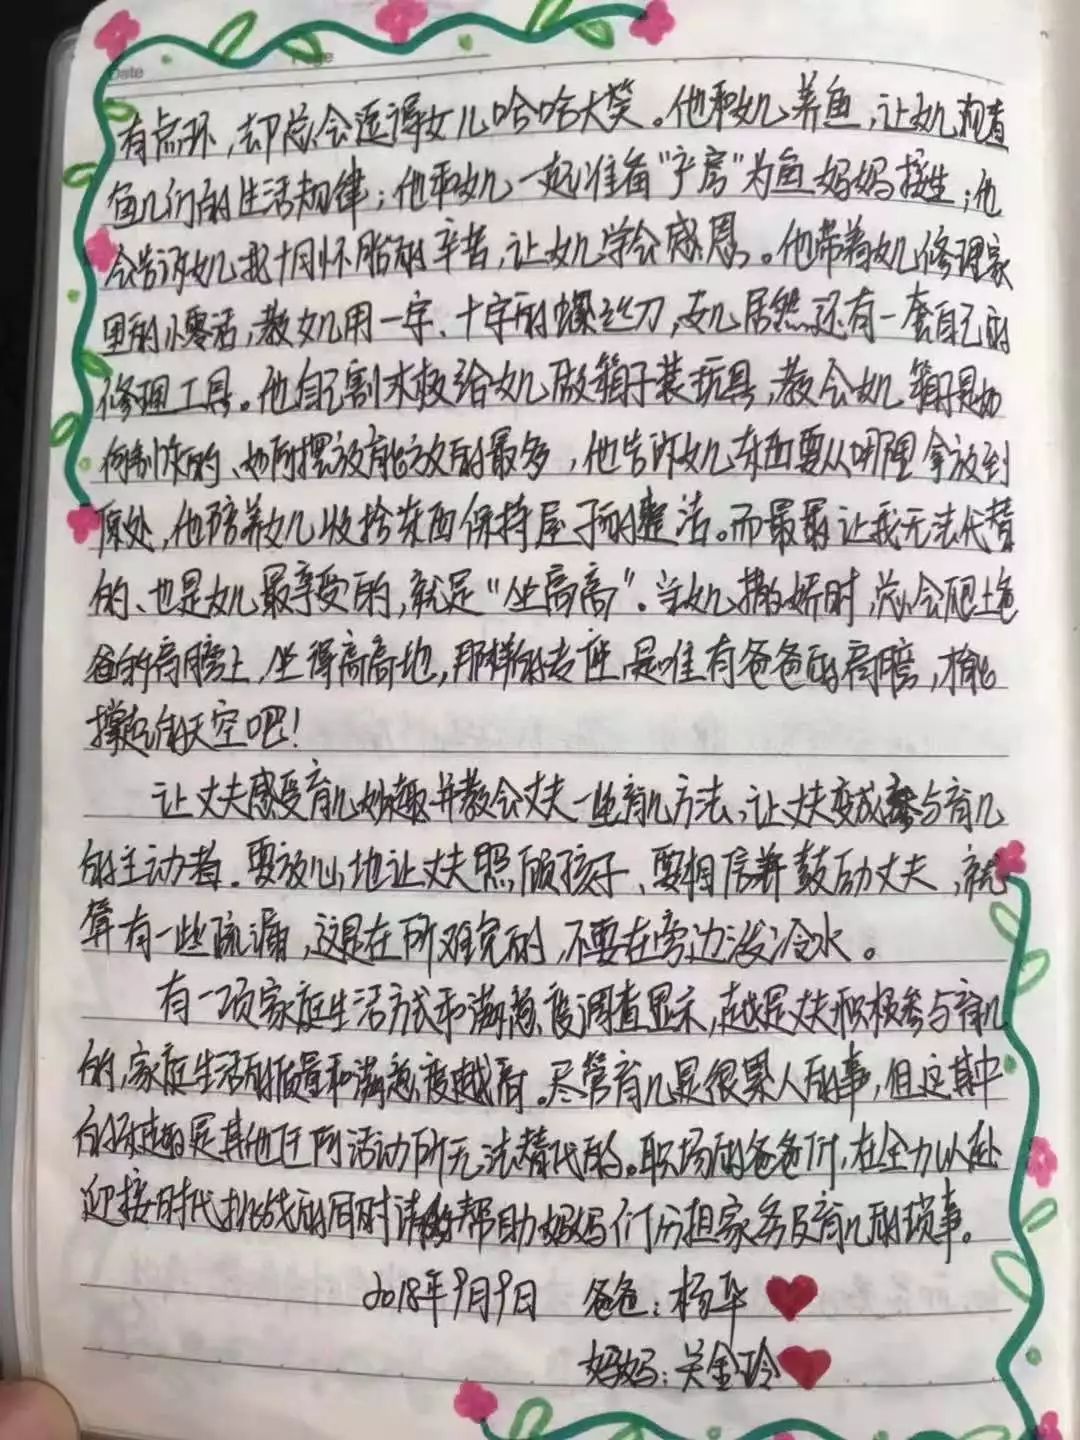 Date
Page
有点坏，却总会逗得女儿哈哈大笑。他和女儿养鱼，让女儿观看
鱼儿们的生活规律；他和女儿一起准备“产房”为鱼妈妈接生；他
会告诉女儿我十月怀胎的辛苦，让女儿学会感恩。他带着女儿修理家
里的小零活，教女儿用一字、十字的螺丝刀，女儿居然还有一套自己的
修理工具。他自己割木板给女儿做箱子装玩具，教会女儿箱子是如
何制作的、如何摆放能放的最多，他告诉女儿东西要从哪里拿放到
原处，他陪着女儿收拾东西保持屋子的整洁。而最最让我无法代替
的、也是女儿最享受的，就是“坐高高”。当女儿撒娇时，总会爬上爸
爸的肩膀上，坐得高高地，那样的专座，是唯有爸爸的肩膀，才能
撑起的天空吧！
让丈夫感受育儿妙趣并教会丈夫一些育儿方法，让丈夫变成参与育儿
的主动者。要放心地让丈夫照顾孩子、要相信并鼓励丈夫，就
算有一些疏漏，这是在所难免的，不要在旁边泼冷水。
有一项家庭生活方式和满意度调查显示，越是丈夫积极参与育儿
的，家庭生活的质量和满意度越高。尽管育儿是很累人的事，但这其中
的乐趣是其他任何活动所无法替代的。职场的爸爸们，在全力以赴
迎接时代挑战的同时请帮助妈妈们分担家务及育儿的琐事。
2018年9月9日 爸爸：杨华
妈妈：关金玲